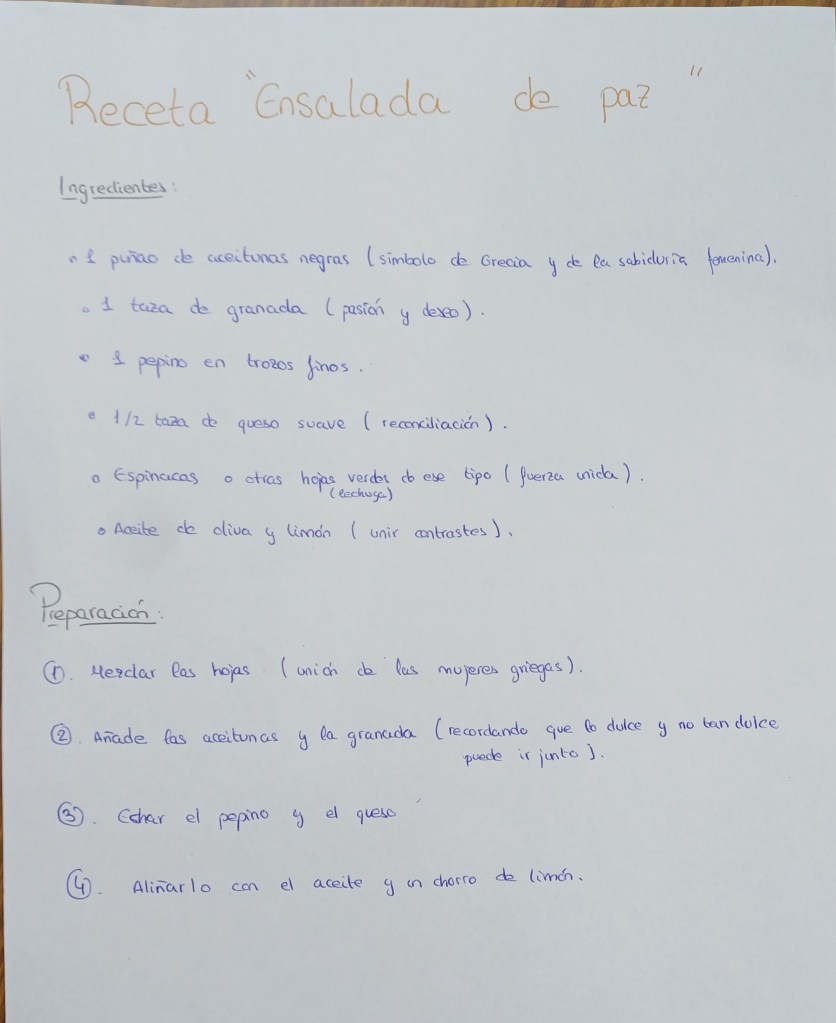 Receta "Ensalada de paz"
Ingredientes:
• 1 puñao de aceitunas negras (símbolo de Grecia y de la sabiduría femenina).
• 1 taza de granada (pasión y deseo).
• 1 pepino en trozos finos.
• 1/2 taza de queso suave (reconciliación).
• Espinacas o otras hojas verdes de ese tipo (fuerza unida).
(lechuga)
• Aceite de oliva y limón (unir contrastes).
Preparación:
①. Mezclar las hojas (unión de las mujeres griegas).
②. Añade las aceitunas y la granada (recordando que lo dulce y no tan dulce
puede ir junto).
③. Echar el pepino y el queso
④. Aliñarlo con el aceite y un chorro de limón.